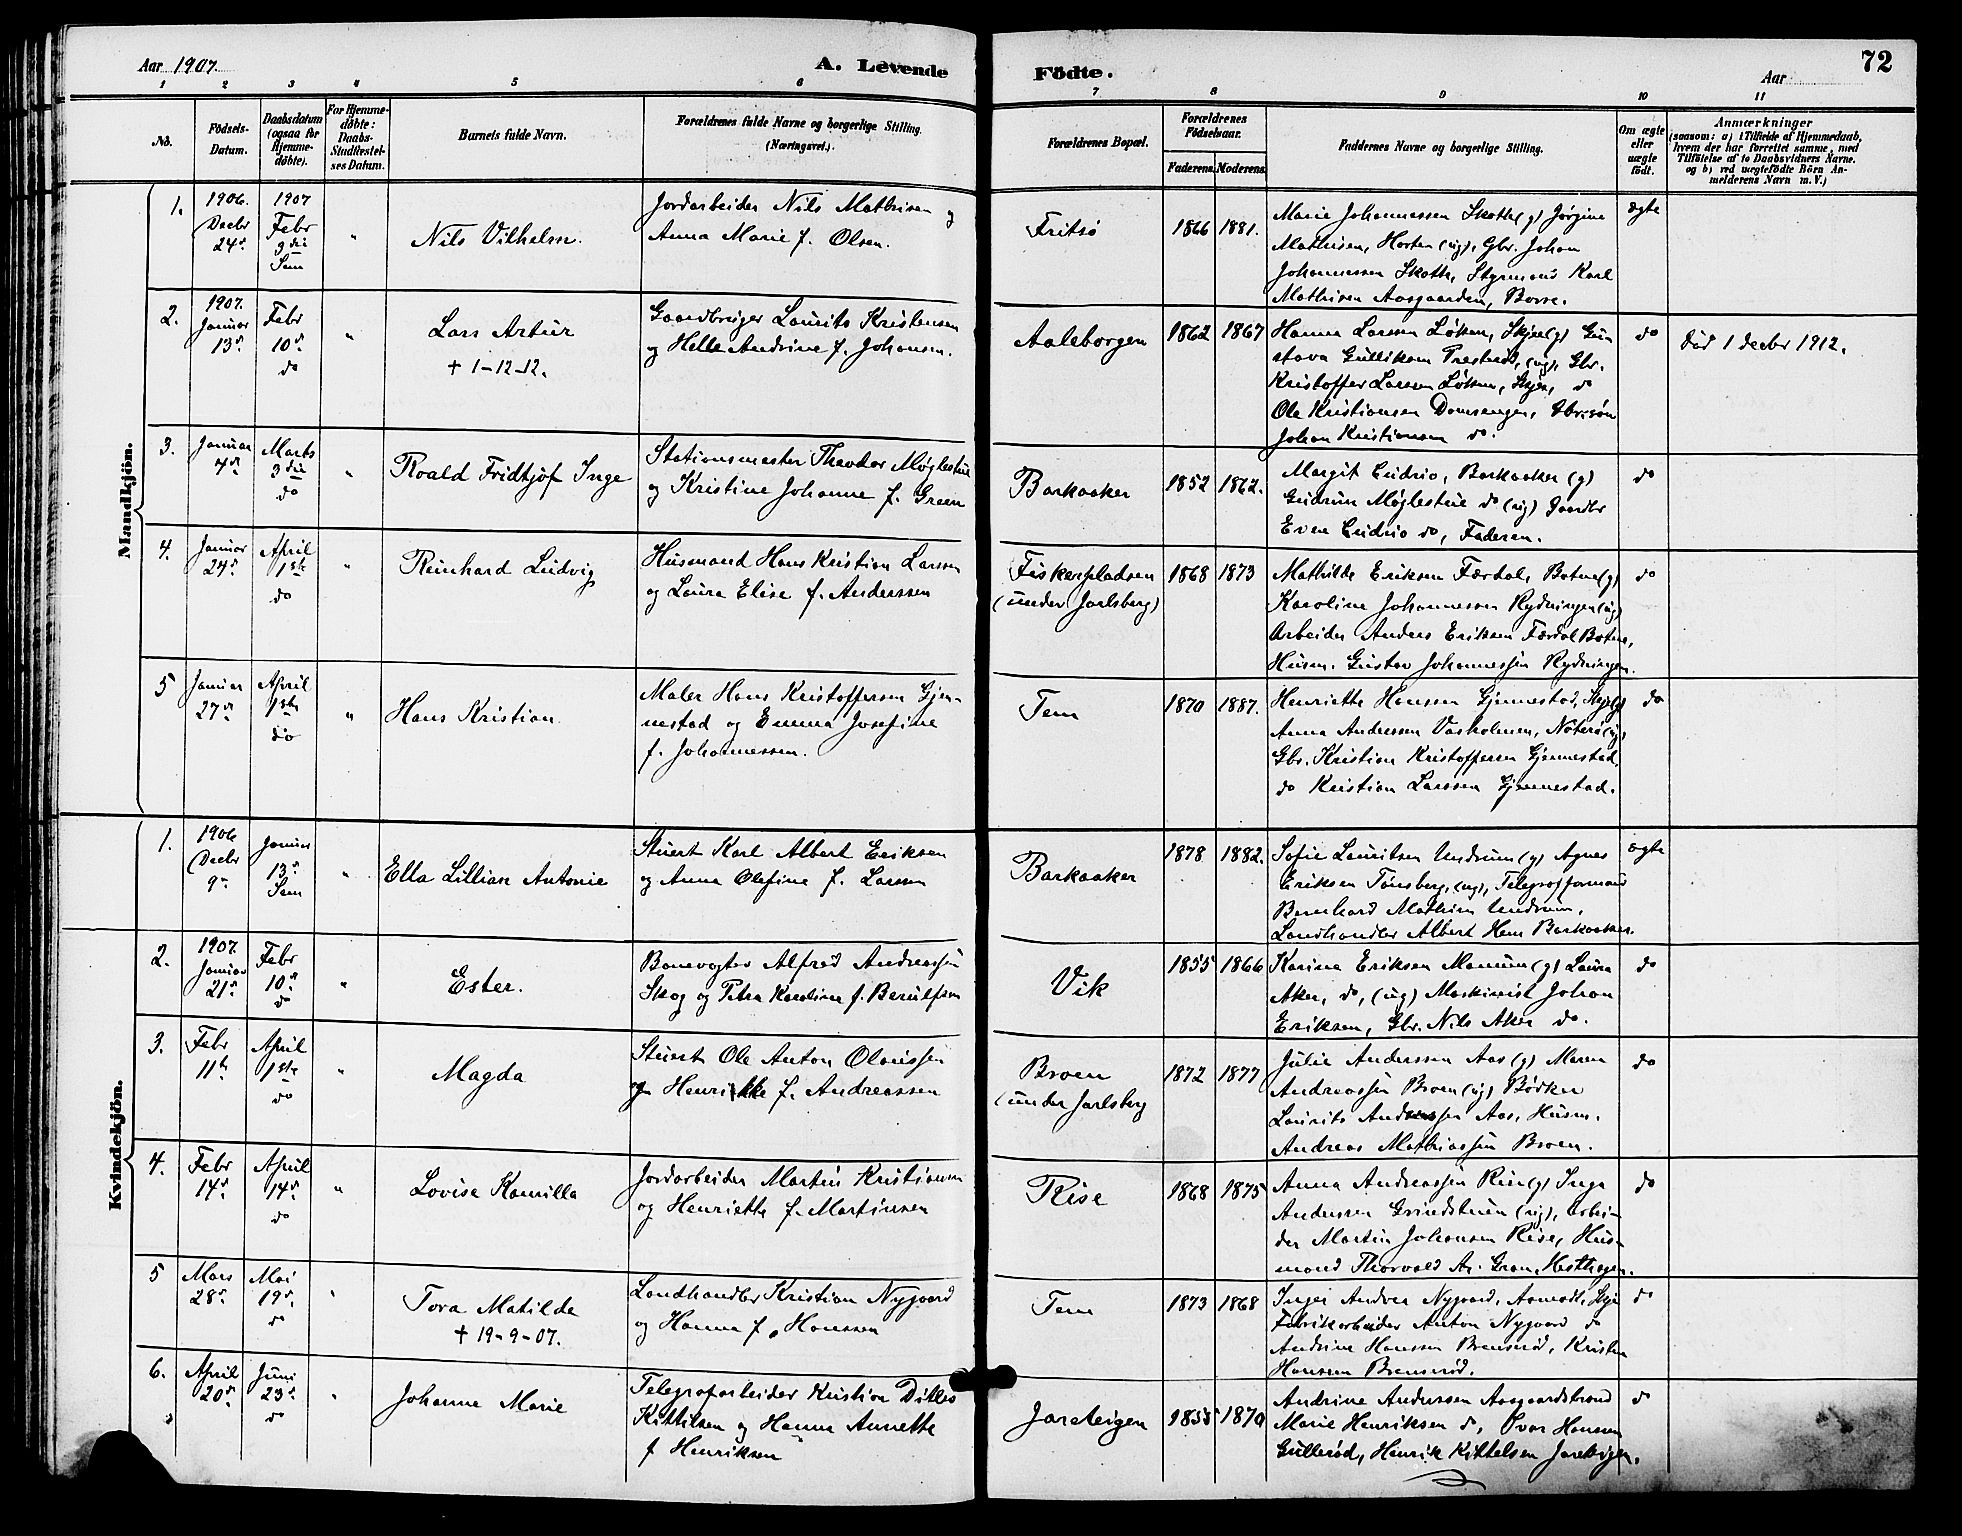 Aar 1907.
A. Levende
Födte.
Aar
72
1 2 3 4 5 6
7 8 9 10 11
No.
Födsels-
Datum.
Daabsdatum
(ogsaa for
Hjemme-
döbte).
For Hjemme-
döbte:
Daabs-
Stadfæstel-
ses Datum.
Barnets fulde Navn.
Forældrenes fulde Navne og borgerlige Stilling.
(Næringsvei.)
Forældrenes Bopæl.
Forældrenes
Födselsaar.
Faderens. Moderens.
Faddernes Navne og borgerlige Stilling.
Om ægte
eller
uægte
födt.
Anmærkninger
(saasom: a) i Tilfælde af Hjemmedaab,
hvem der har forrettet samme, med
Tilföielse af to Daabsvidners Navne.
og b) ved uægtefödte Börn An-
melderens Navn m. V.)
Mandkjön.
1.
1906.
Decbr
24d.
1907
Febr
3die
Sem
"
Nils Vilhelm.
Jordarbeider Nils Mathisen og
Anna Marie f. Olsen.
Fritsö
1866 1881.
Marie Johannessen Skotte (g) Jørgine
Mathisen, Horten (ug), Gbr. Johan
Johannessen Skotte, Styrmand Karl
Mathisen Aasgaarden, Borre.
ægte
2.
1907.
Januar
13d.
Febr
10d.
do
"
Lars Artur
+ 1-12-12.
Gaardbruger Laurits Kristensen
og Helle Andrine f. Johansen.
Aaleborgen
1862 1867
Hanna Larsen Løkken, Skjee (g) Gu-
stava Gulliksen Prestrød, (ug), Gbr.
Kristoffer Larsen Løkken, Skjee, do
Ole Kristiansen Domsengen, Gbr.søn
Johan Kristiansen do.
do
død 1 decbr 1912.
3.
Januar
4d.
Marts
3die
do
"
Roald Fridtjof Inge
Stationsmester Theodor Møglestue
og Kristine Johanne f. Green
Barkaaker
1852 1862.
Margit Eudrio, Barkaaker (g)
Gudrun Møglestue do (ug) Gaardbr
Even Eudrio do, Faderen.
do
4.
Januar
24d.
April
1ste
do
"
Reinhard Ludvig
Husmand Hans Kristian Larsen
og Laura Elise f. Anderssen
Fiskerpladsen
(under Jarlsberg)
1868 1873
Mathilde Eriksen Færdal, Botne (g)
Karoline Johannessen Rydningen (ug)
Arbeider Anders Eriksen Færdal Botne,
Husm. Gustav Johannessen Rydningen.
do
5
Januar
27d.
April
1ste
do
"
Hans Kristian.
Maler Hans Kristoffersen Gjen-
nestad og Emma Josefine
f. Johannessen.
Tem
1870 1887.
Henriette Hanssen Gjennestad, Skje (g)
Anna Andressen Vasholmen, Nøterø (ug),
Gbr. Kristian Kristoffersen Gjennestad,
do Kristian Larssen Gjennestad.
do
Kvindekjön.
1.
1906
Decbr
9de
Januar
13d.
Sem
"
Ella Lillian Antonie
Stuert Karl Albert Eriksen
og Anna Olefine f. Larsen
Barkaaker
1878 1882.
Sofie Lauritsen Undrum (g) Agnes
Eriksen Tønsberg, (ug), Telegrafformand
Bernhard Mathisen Undrum,
Landhandler Albert Hem Barkaaker.
ægte
2.
1907.
Januar
21d.
Febr
10d.
do
"
Ester.
Banevogter Alfred Andreassen
Skog og Petra Karoline f. Berulfsen
Vik
1855 1866
Karina Eriksen Manum (g) Laura
Aker, do, (ug) Maskinist Johan
Eriksen, Gbr. Nils Aker do.
do
3.
Febr
11te
April
1ste
do
"
Magda
Stuert Ole Anton Olaussen
og Henrikke f. Andreassen
Broen
(under Jarlsberg
1872 1877
Julie Anderssen Aas (g) Maren
Andreassen Broen (ug) Bødker
Laurits Anderssen Aas, Husm.
Andreas Mathiassen Broen.
do
4.
Febr
14d.
April
14d.
do
"
Lovise Kamilla
Jordarbeider Martin Kristiansen
og Henriette f. Martinsen
Rise
1868 1875
Anna Andreassen Rise (g) Inga
Andersen Grindstuen (ug), Arbei-
der Martin Johansen Rise, Hus-
mand Thorvald An. Gran, Hesthagen.
do
5
Mars
28d.
Mai
19d.
do
"
Tora Matilde
+ 19-9-07.
Landhandler Kristian Nygaard
og Hanna f. Hanssen
Tem
1873 1868
Inger Andrea Nygaard, Aamodt, Skje
Fabrikarbeider Anton Nygaard do
Andrine Hanssen Brensrød, Kristen
Hanssen Brensrød.
do
6.
April
20d.
Juni
23d.
do
"
Johanne Marie
Telegrafarbeider Kristian Ditlev
Kittilsen og Hanna Annette
f Henriksen
Jareteigen
1855 1870
Andrine Anderssen Aasgaardstrand
Marie Henriksen do, Ovar Hansen
Gullerød, Henrik Kittelsen Jareteigen.
do